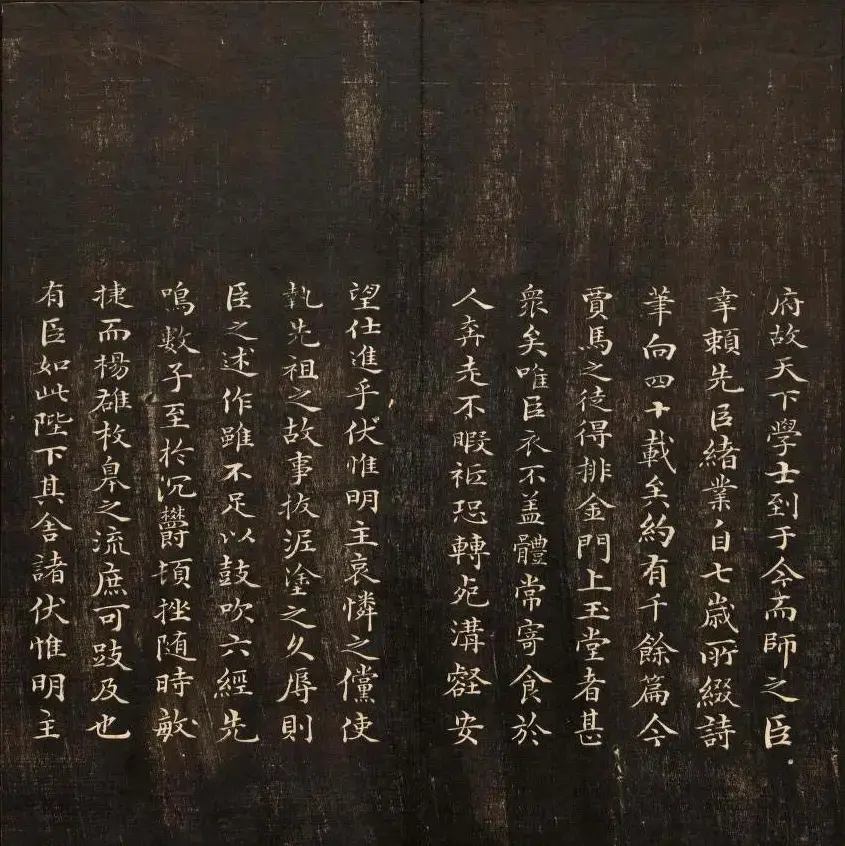 府故天下學士到于今而師之臣
幸賴先臣緒業自七歲所綴詩
筆向四十載矣約有千餘篇今
賈馬之徒得排金門上玉堂者甚
衆矣唯臣衣不盖體常寄食於
人奔走不暇祗恐轉死溝壑安
望仕進乎伏惟明主哀憐之儻使
執先祖之故事拔泥塗之久辱則
臣之述作雖不足以鼓吹六經先
鳴數子至於沉欝頓挫随時敏
捷而楊雄枚臯之流庶可跂及也
有臣如此陛下其舍諸伏惟明主